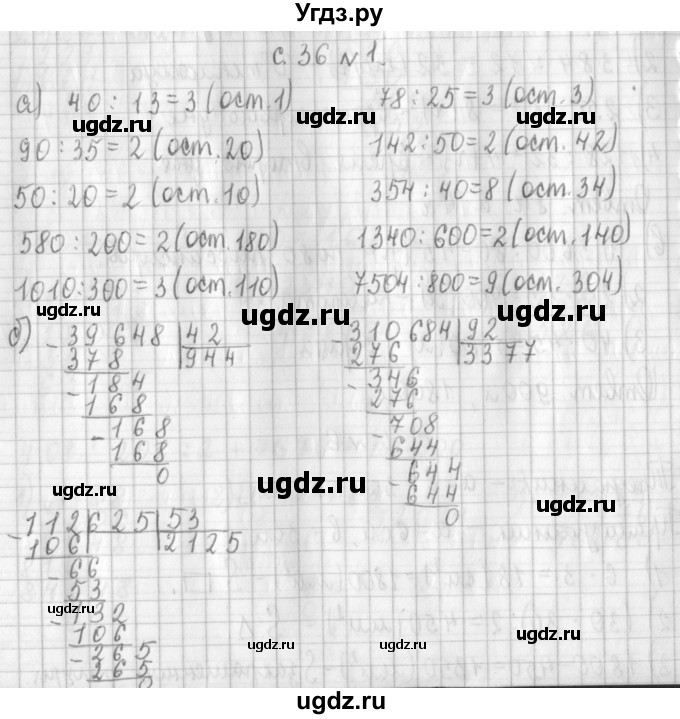 Угдз.ру
с. 36 № 1.
а) 40 : 13 = 3 (ост. 1) 78 : 25 = 3 (ост. 3)
ugdz.ru ugdz.ru
90 : 35 = 2 (ост. 20) 142 : 50 = 2 (ост. 42)
ugdz.ru
50 : 20 = 2 (ост. 10) 354 : 40 = 8 (ост. 34)
580 : 200 = 2 (ост. 180) 1340 : 600 = 2 (ост. 140)
ugdz.ru
1010 : 300 = 3 (ост. 110) 7504 : 800 = 9 (ост. 304)
ugdz.ru ugdz.ru ugdz.ru ugdz.ru
б) - 39648 | 42
378 | 944
- 184
168
- 168
168
0
- 310684 | 92
276 | 3377
- 346
276
- 708
644
- 644
644
0
ugdz.ru ugdz.ru ugdz.ru
- 112625 | 53
106 | 2125
- 66
53
- 132
106
- 265
265
0
ugdz.ru ugdz.ru
ugdz.ru ugdz.ru ugdz.ru
ugdz.ru